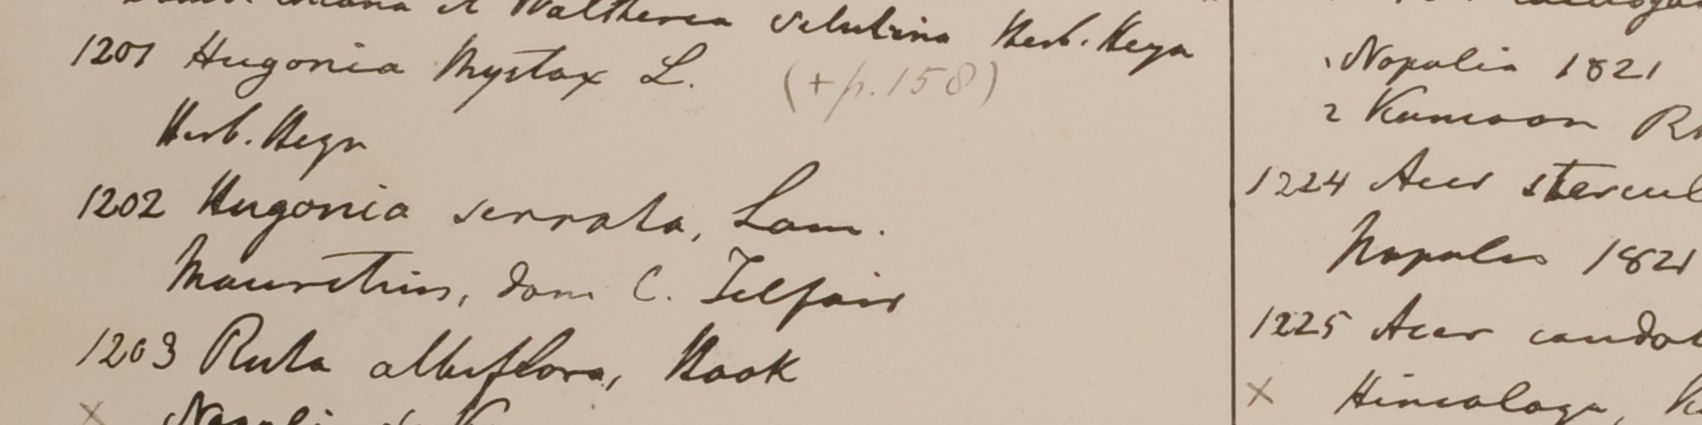 et Waltheria velutina Herb. Heyn
1201 Hugonia Mystax L. (+p. 158)
Herb. Heyn
1202 Hugonia serrata, Lam.
Mauritius, dom C. Telfair
1203 Ruta albiflora, Hook
x Napalia
Napalia 1821
2 Kumaon
1224 Acer stercul
Napalia 1821
1225 Acer caudat
x Himalaya,